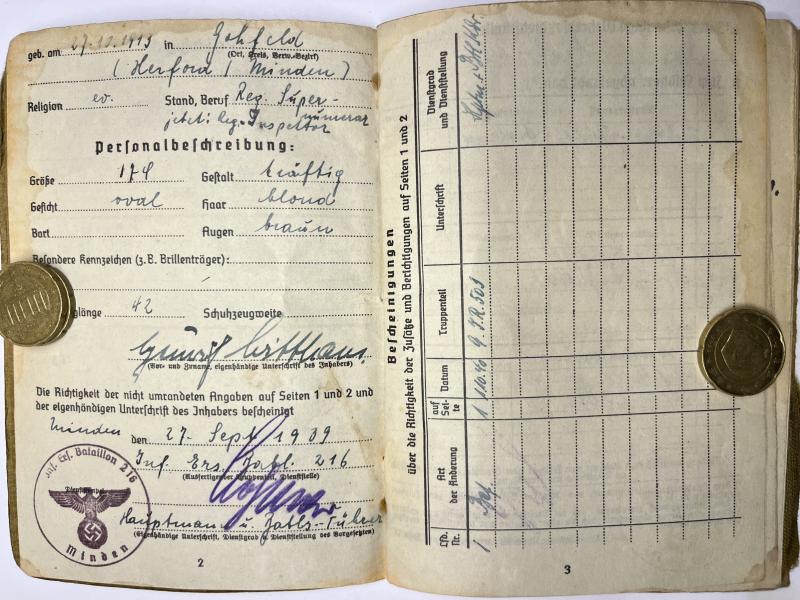 geb. am 27.10.1913 in Gohfeld
(Ort, Kreis, Verw.-Bezirk)
(Herford / Minden)
Religion ev. Stand, Beruf Reg. Super-
numerar
jetzt: Reg.-Inspektor
Personalbeschreibung:
Größe 174 Gestalt kräftig
Gesicht oval Haar blond
Bart Augen braun
Besondere Kennzeichen (z.B. Brillenträger):
länge 42 Schuhzeugweite
(Vor- und Zuname, eigenhändige Unterschrift des Inhabers)
Die Richtigkeit der nicht umrandeten Angaben auf Seiten 1 und 2 und
der eigenhändigen Unterschrift des Inhabers bescheinigt
Minden den 27. Sept 1939
Inf. Ers. Batl. 216
(Ausfertigender Truppenteil, Dienststelle)
Inf. Ers. Bataillon 216
Minden
Hauptmann u. Batls-Führer
(Eigenhändige Unterschrift, Dienstgrad u. Dienststellung des Vorgesetzten)
2
Bescheinigungen
über die Richtigkeit der Zusätze und Berichtigungen auf Seiten 1 und 2
Lfd. Nr.
Art der Änderung
auf Sei-te
Datum
Truppenteil
Unterschrift
Dienstgrad und Dienststellung
1 1 1.10.40 9. J.R. 501
3